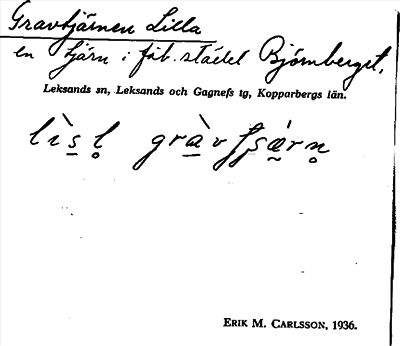 Gravtjärnen Lilla
en tjärn i fäb.stället Björnberget.
Leksands sn, Leksands och Gagnefs tg, Kopparbergs län.
lìsl gràv
ERIK M. CARLSSON, 1936.